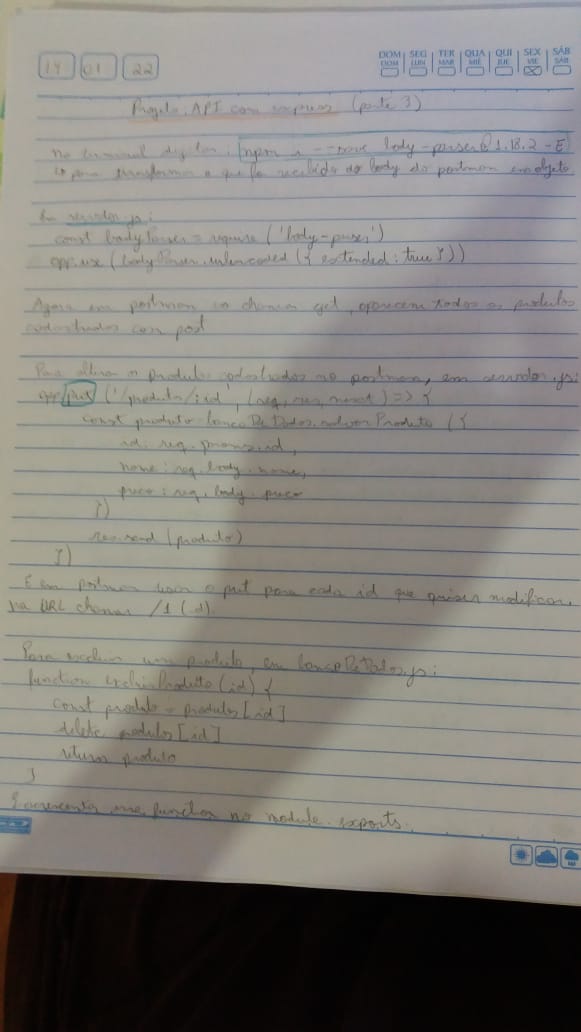 14 01 22
DOM SEG TER QUA QUI SEX SÁB
DOM LUN MAR MIÉ JUE VIE SÁB
Projeto API com express (parte 3)
No terminal digitar: npm i --save body-parser@1.18.2 -E
↳ para transformar o que foi recebido do body do postman em objeto
Em servidor.js:
const bodyParser = require('body-parser')
app.use(bodyParser.urlencoded({ extended: true }))
Agora em postman ao chamar get, aparecem todos os produtos
cadastrados com post
Para alterar os produtos cadastrados no postman, em servidor.js:
app.put('/produtos/:id', (req, res, next) => {
const produto = bancoDeDados.salvarProduto({
id: req.params.id,
nome: req.body.nome,
preco: req.body.preco
})
res.send(produto)
})
E em postman usar o put para cada id que quiser modificar,
na URL chamar /1 (id).
Para excluir um produto, em bancoDeDados.js:
function excluirProduto(id) {
const produto = produtos[id]
delete produtos[id]
return produto
}
E acrescentar essa function no module.exports.